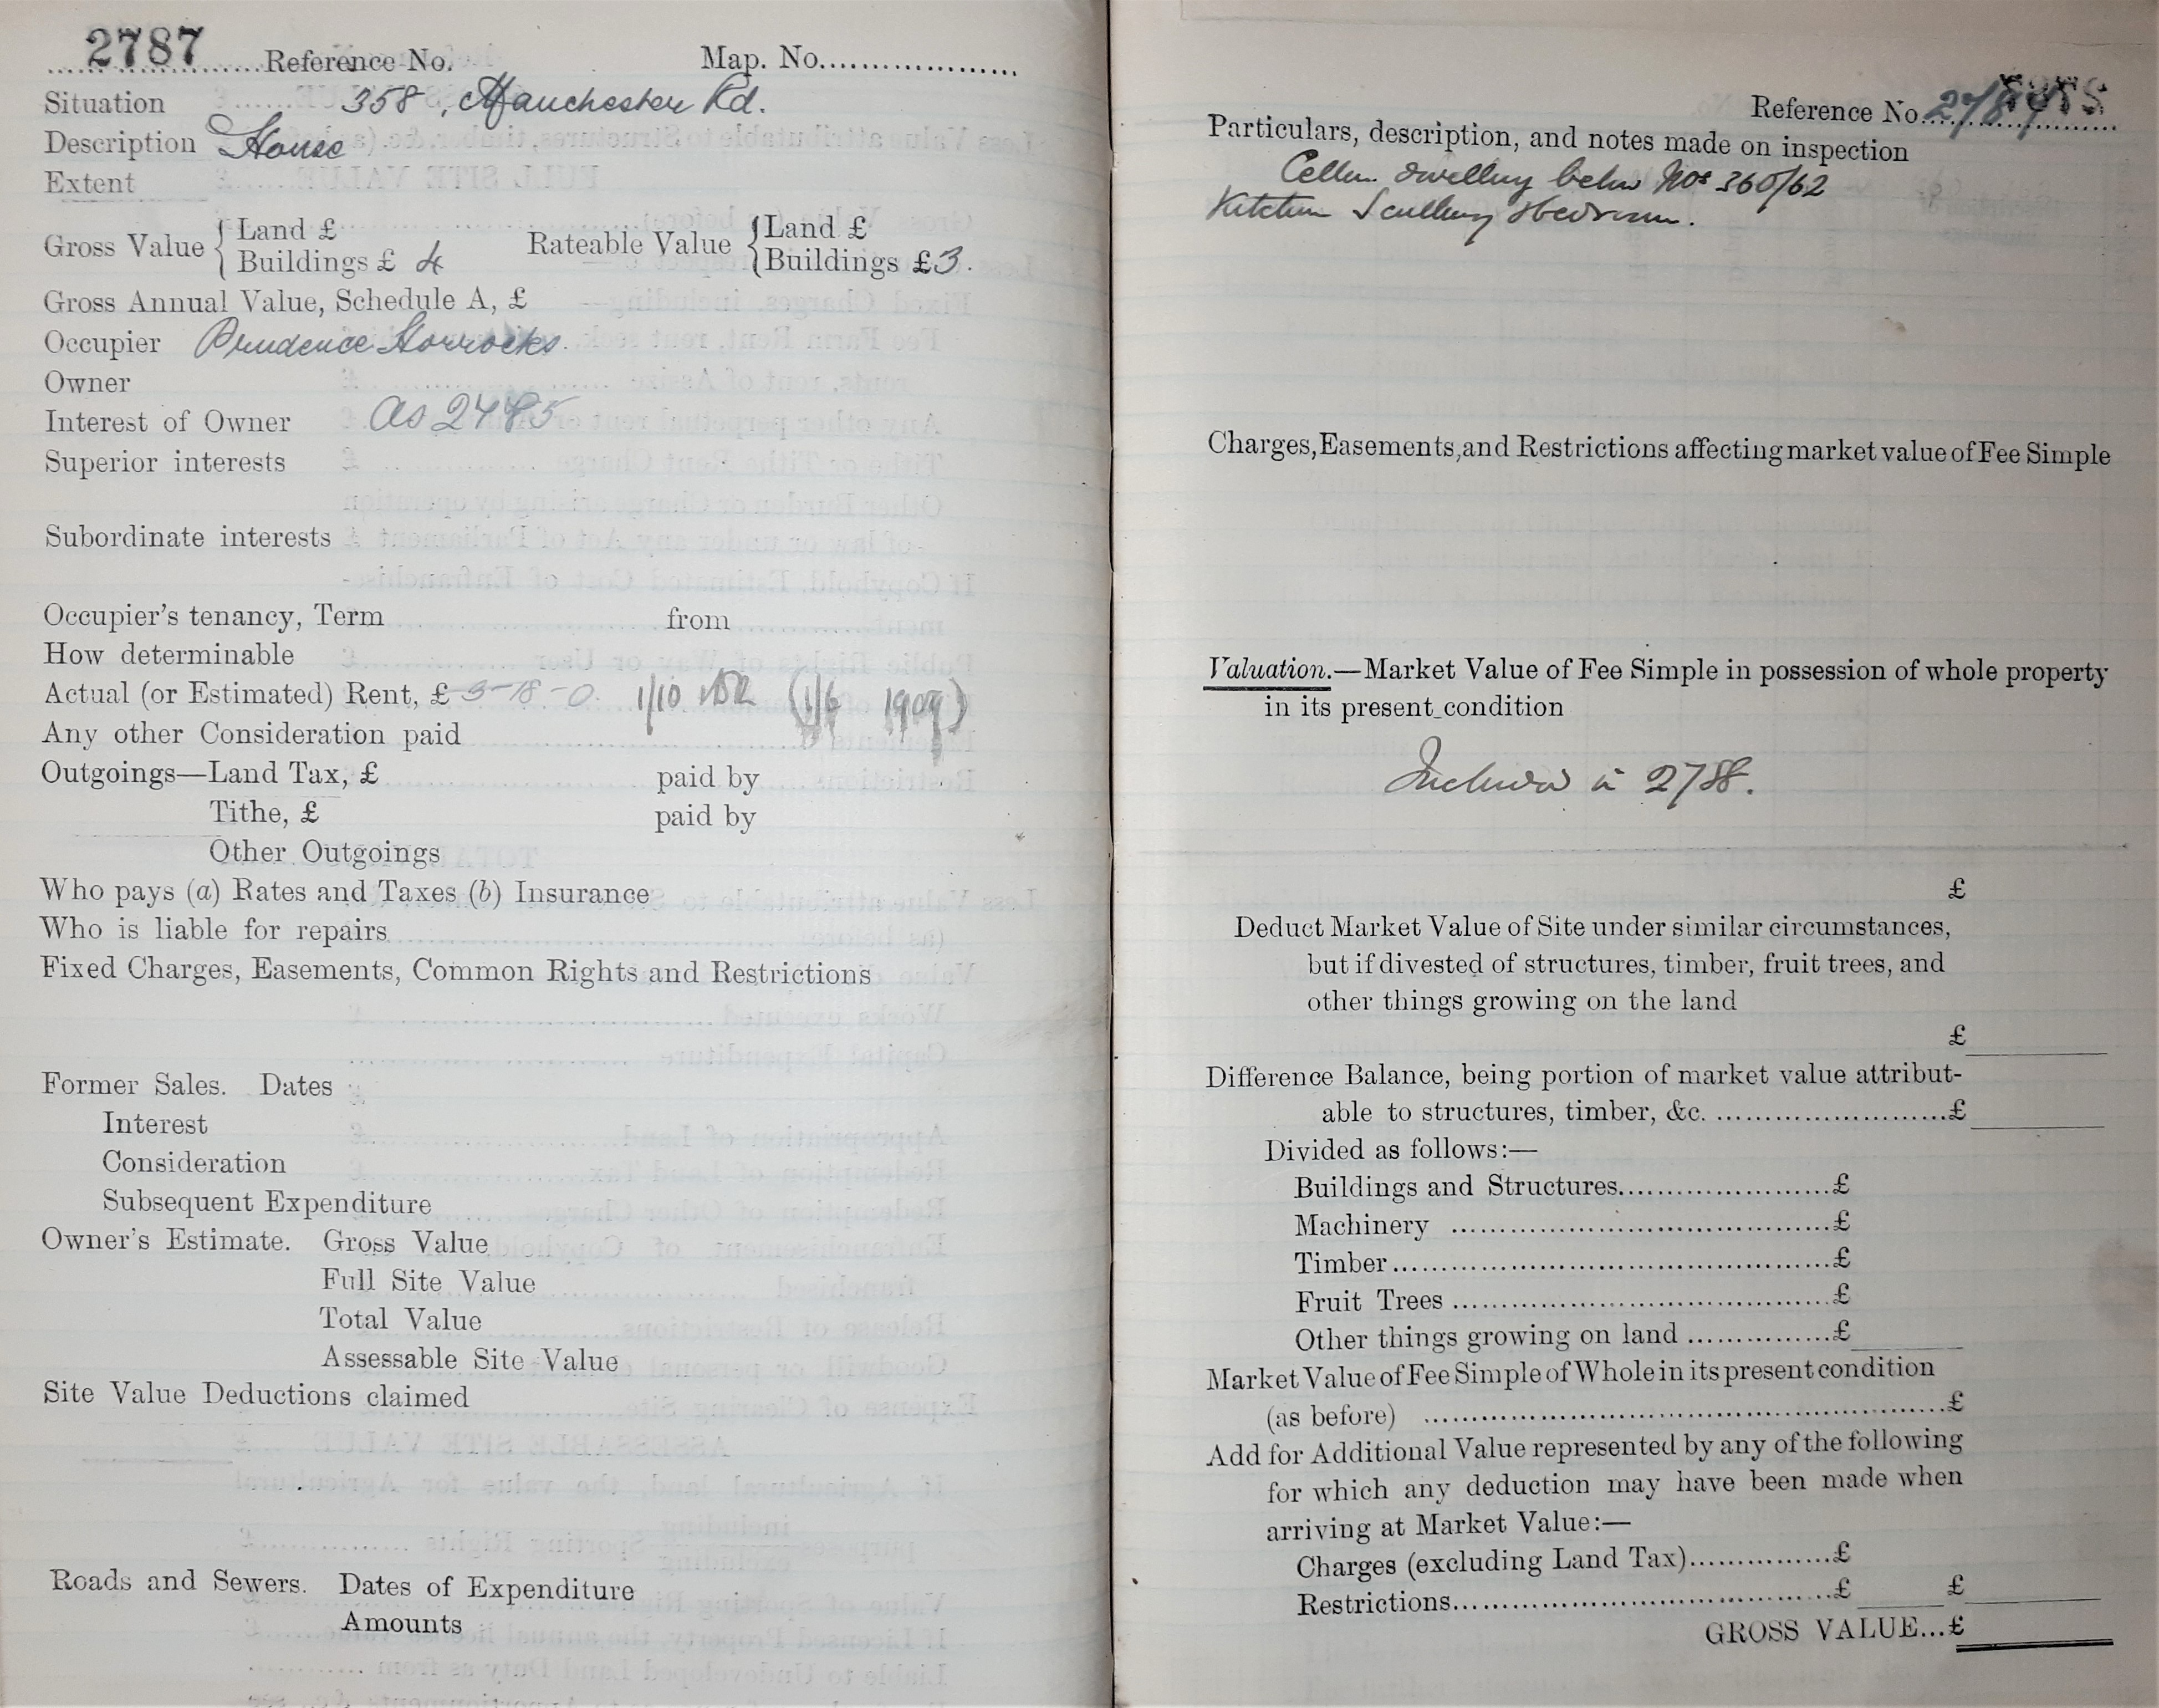 2787 Reference No. Map. No.
Situation 358, Manchester Rd.
Description House
Extent
Gross Value { Land £ Rateable Value { Land £
Buildings £ 4 Buildings £3.
Gross Annual Value, Schedule A, £
Occupier Prudence Horrocks
Owner
Interest of Owner as 2485
Superior interests
Subordinate interests
Occupier's tenancy, Term from
How determinable
Actual (or Estimated) Rent, £ 3-18-0. 1/10 (1/6 1909)
Any other Consideration paid
Outgoings—Land Tax, £ paid by
Tithe, £ paid by
Other Outgoings
Who pays (a) Rates and Taxes (b) Insurance
Who is liable for repairs
Fixed Charges, Easements, Common Rights and Restrictions
Former Sales. Dates
Interest
Consideration
Subsequent Expenditure
Owner's Estimate. Gross Value
Full Site Value
Total Value
Assessable Site Value
Site Value Deductions claimed
Roads and Sewers. Dates of Expenditure
Amounts
Reference No. 2787
Particulars, description, and notes made on inspection
Cellar dwelling below Nos 360/62
Kitchen Scullery & bedroom.
Charges, Easements, and Restrictions affecting market value of Fee Simple
Valuation.—Market Value of Fee Simple in possession of whole property
in its present condition
Included in 2788.
£
Deduct Market Value of Site under similar circumstances,
but if divested of structures, timber, fruit trees, and
other things growing on the land
£
Difference Balance, being portion of market value attribut-
able to structures, timber, &c. £
Divided as follows:—
Buildings and Structures £
Machinery £
Timber £
Fruit Trees £
Other things growing on land £
Market Value of Fee Simple of Whole in its present condition
(as before) £
Add for Additional Value represented by any of the following
for which any deduction may have been made when
arriving at Market Value:—
Charges (excluding Land Tax) £
Restrictions £ £
GROSS VALUE...£